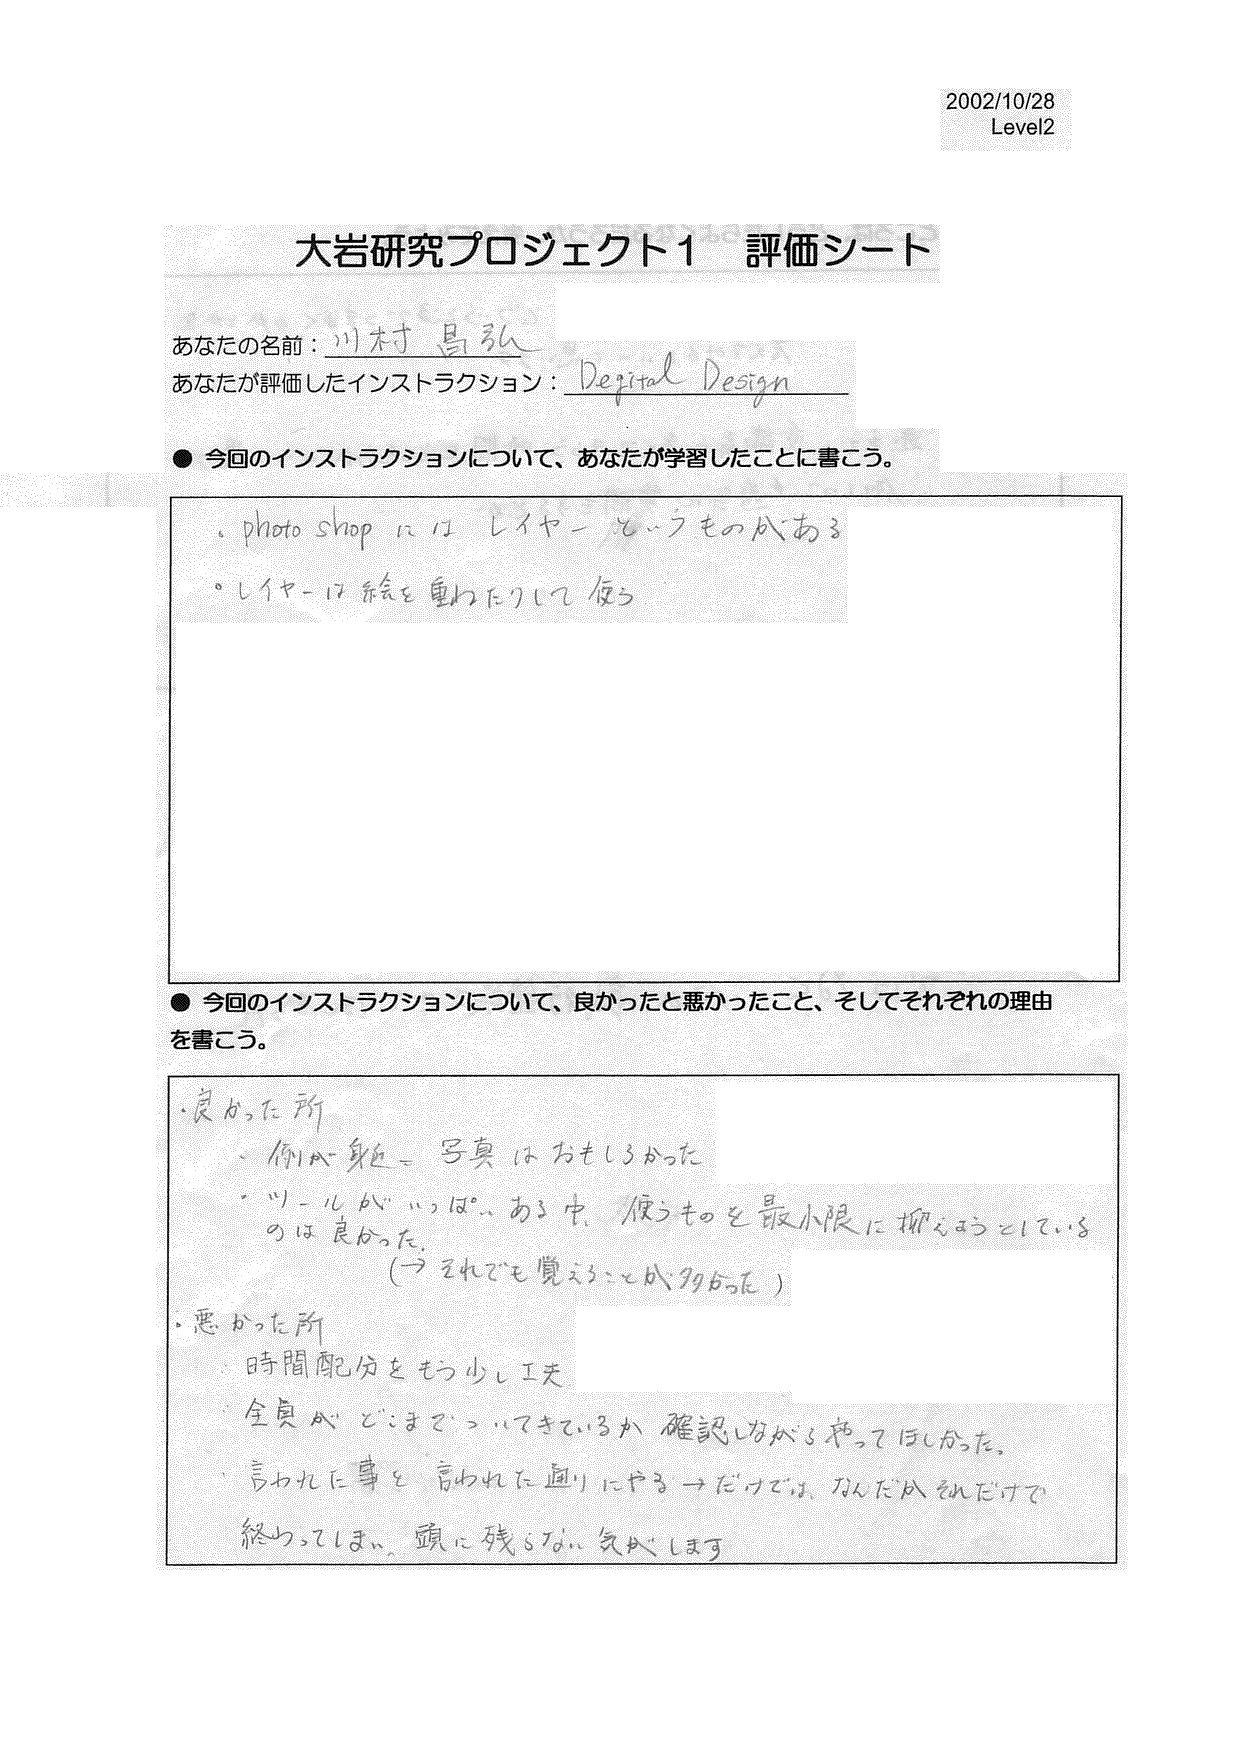 2002/10/28
Level2
大岩研究プロジェクト1　評価シート
あなたの名前：川村 昌弘
あなたが評価したインストラクション：Degital Design
● 今回のインストラクションについて、あなたが学習したことに書こう。
・photo shop には レイヤー というものがある
・レイヤーは 絵を 重ねたりして 使う
● 今回のインストラクションについて、良かったと悪かったこと、そしてそれぞれの理由
を書こう。
・良かった所
・例が身近 写真 は おもしろかった
・ツールがいっぱいある中、使うものを最小限に抑えようとしている
のは良かった。
(→それでも覚えることが多かった)
・悪かった所
・時間配分をもう少し工夫
・全員が どこまでついてきているか 確認しながらやってほしかった。
・言われた事を 言われた通りにやる→だけでは、なんだかそれだけで
終わってしまい、頭に残らない気がします